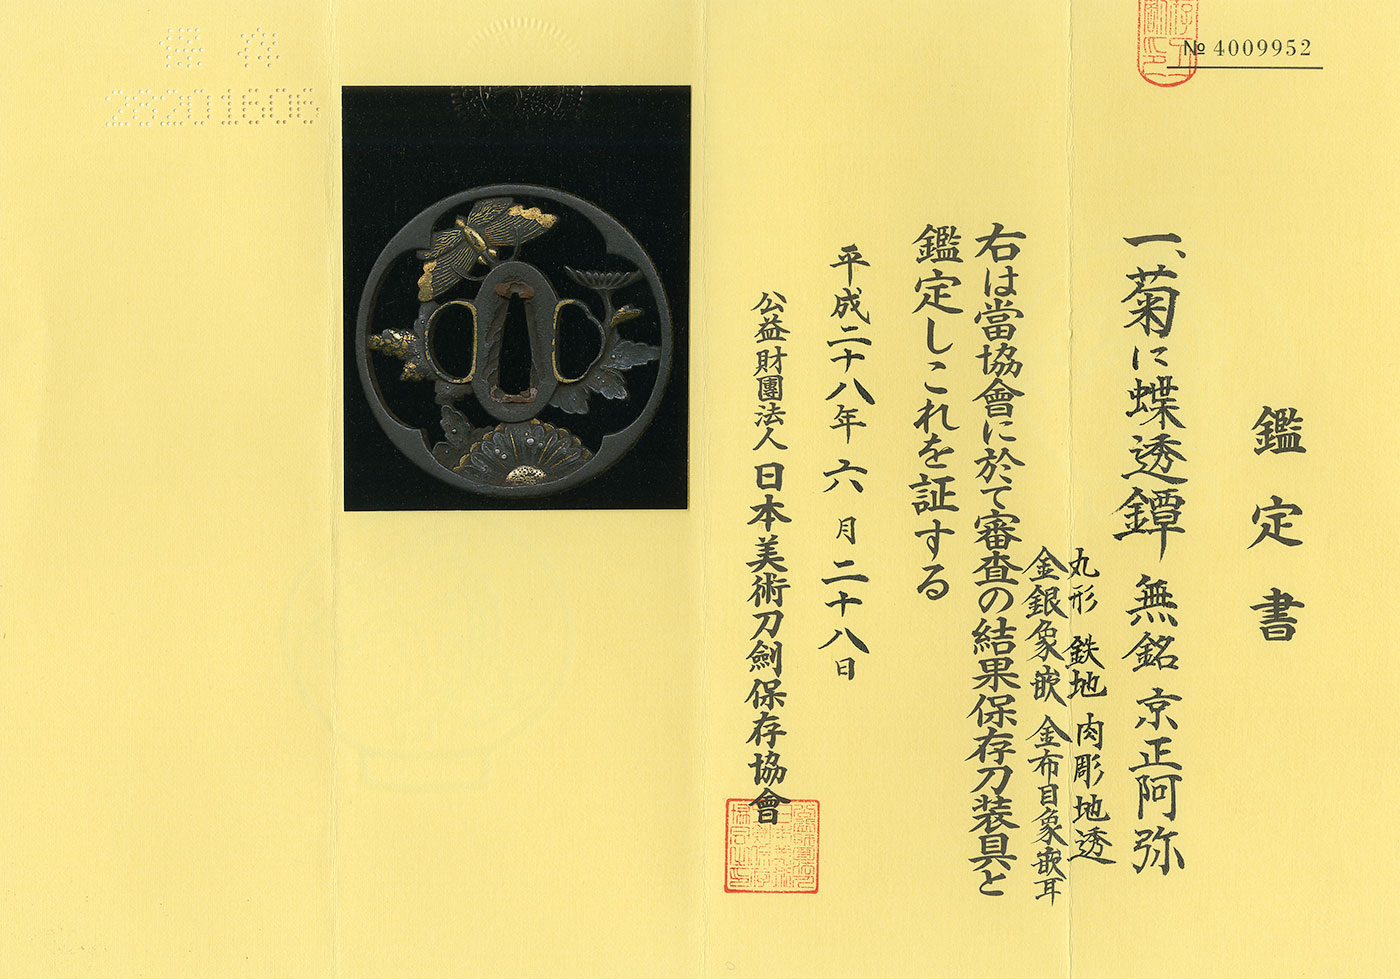 № 4009952
鑑定書
一、菊に蝶透鐔 無銘 京正阿弥
丸形 鉄地 肉彫地透
金銀象嵌 金布目象嵌耳
右は當協會に於て審査の結果保存刀装具と
鑑定しこれを証する
平成二十八年 六月二十八日
公益財團法人 日本美術刀劍保存協會
保存
28201606